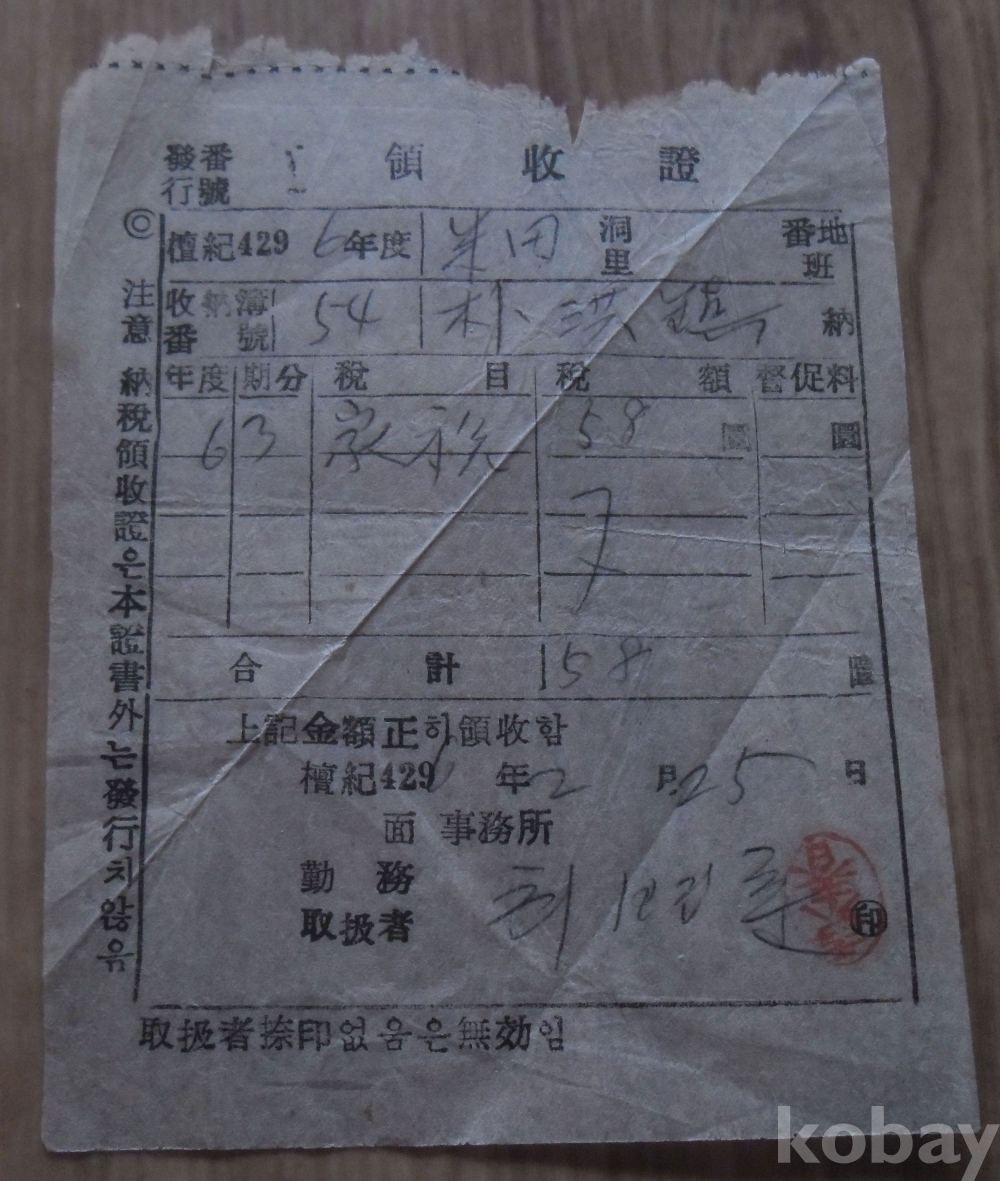 發行番號 領收證
檀紀429 6年度 米田 洞里 番地班
收納簿番號 54 朴洪鎮 納
年度 期分 稅目 稅額 督促料
6 3 家稅 58 圜 圜
合計 58 圜
上記金額正히領收함
檀紀429 年 2 月 25 日
面事務所
勤務
取扱者 印
取扱者捺印없음은無効임
◎ 注意 納稅領收證은本證書外는發行치않유
kobay